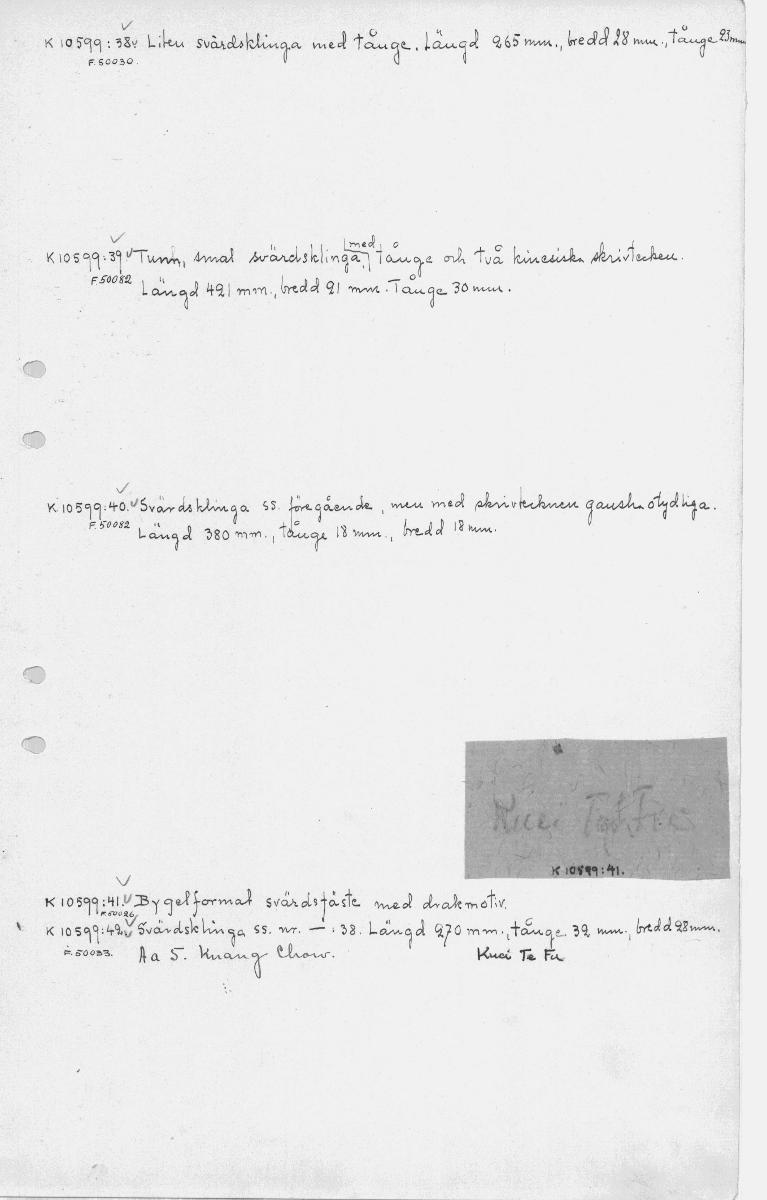 K 10599:38. Liten svärdsklinga med tånge. Längd 265 mm., bredd 28 mm., tånge 23 mm
F. 50030.
K 10599:39 Tunn, smal svärdsklinga, med tånge och två kinesiska skrivtecken.
F. 50082 Längd 421 mm., bredd 21 mm. Tånge 30 mm.
K 10599:40. Svärdsklinga ss. föregående, men med skrivtecknen ganska otydliga.
F. 50082 Längd 380 mm., tånge 18 mm., bredd 18 mm.
Kuei Te Fu
K 10599:41.
K 10599:41. Bygelformat svärdsfäste med drakmotiv.
F. 50026.
K 10599:42. Svärdsklinga ss. nr. — : 38. Längd 270 mm., tånge 32 mm., bredd 28 mm.
F. 50033. Aa 5. Kuang Chow. Kuei Te Fu